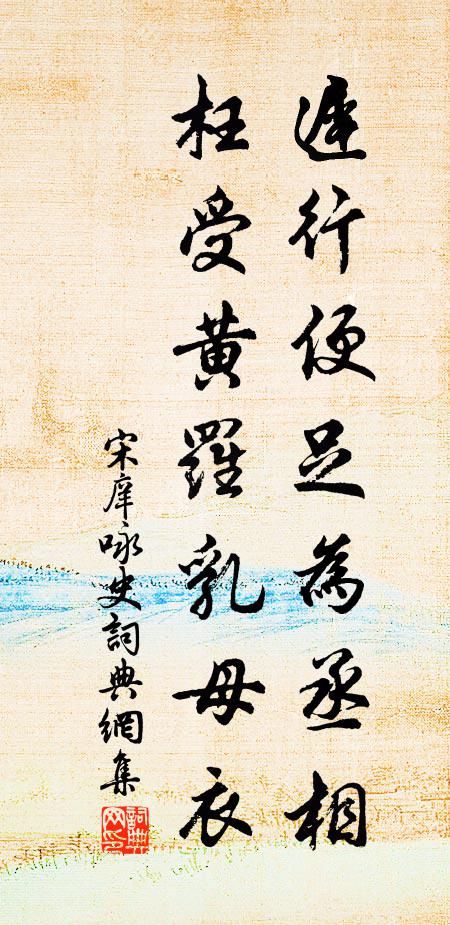 遲行便足為丞相
枉受黃羅乳母衣
宋庠咏史詞典網集